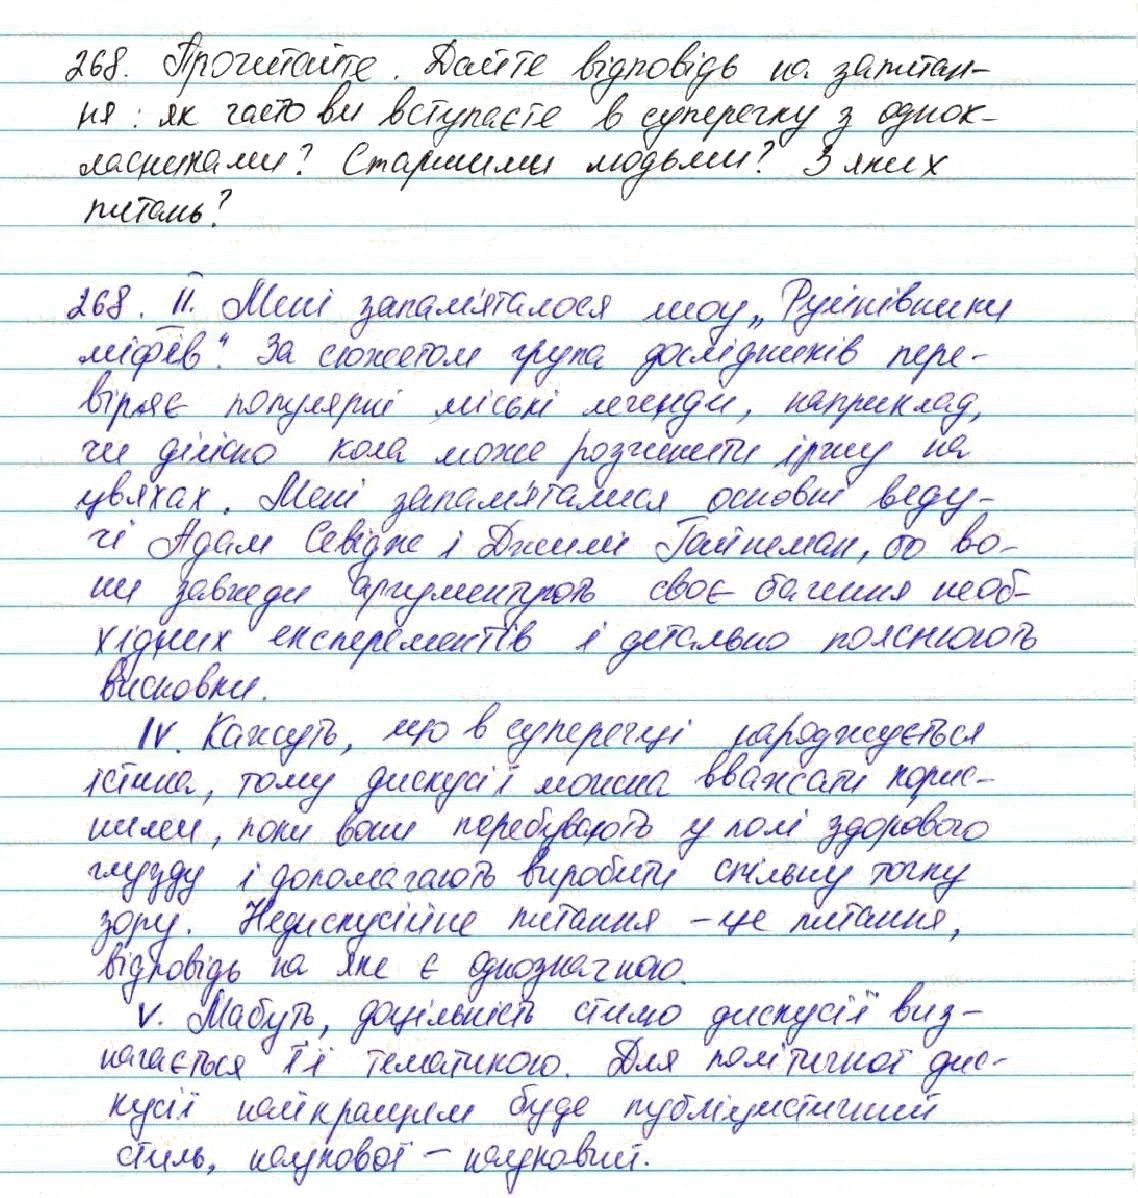 268. Прочитайте. Дайте відповідь на запитан-
ня: як часто ви вступаєте в суперечку з однок-
ласниками? Старшими людьми? З яких
питань?
268. II. Мені запам'яталося шоу „Руйнівники
міфів". За сюжетом група дослідників пере-
віряє популярні міські легенди, наприклад,
чи дійсно кола може розчинити іржу на
цвяхах. Мені запам'яталися основні веду-
чі Адам Севідж і Джеймі Гайнеман, бо во-
ни завжди аргументують своє бачення необ-
хідних експерементів і детально пояснюють
висновки.
IV. Кажуть, що в суперечці народжується
істина, тому дискусії можна вважати корис-
ними, поки вони перебувають у полі здорового
глузду і допомагають виробити спільну точку
зору. Недискусійне питання – це питання,
відповідь на яке є однозначною.
V. Мабуть, доцільність стилю дискусії виз-
начається її тематикою. Для політичної дис-
кусії найкращим буде публіцистичний
стиль, наукової – науковий.